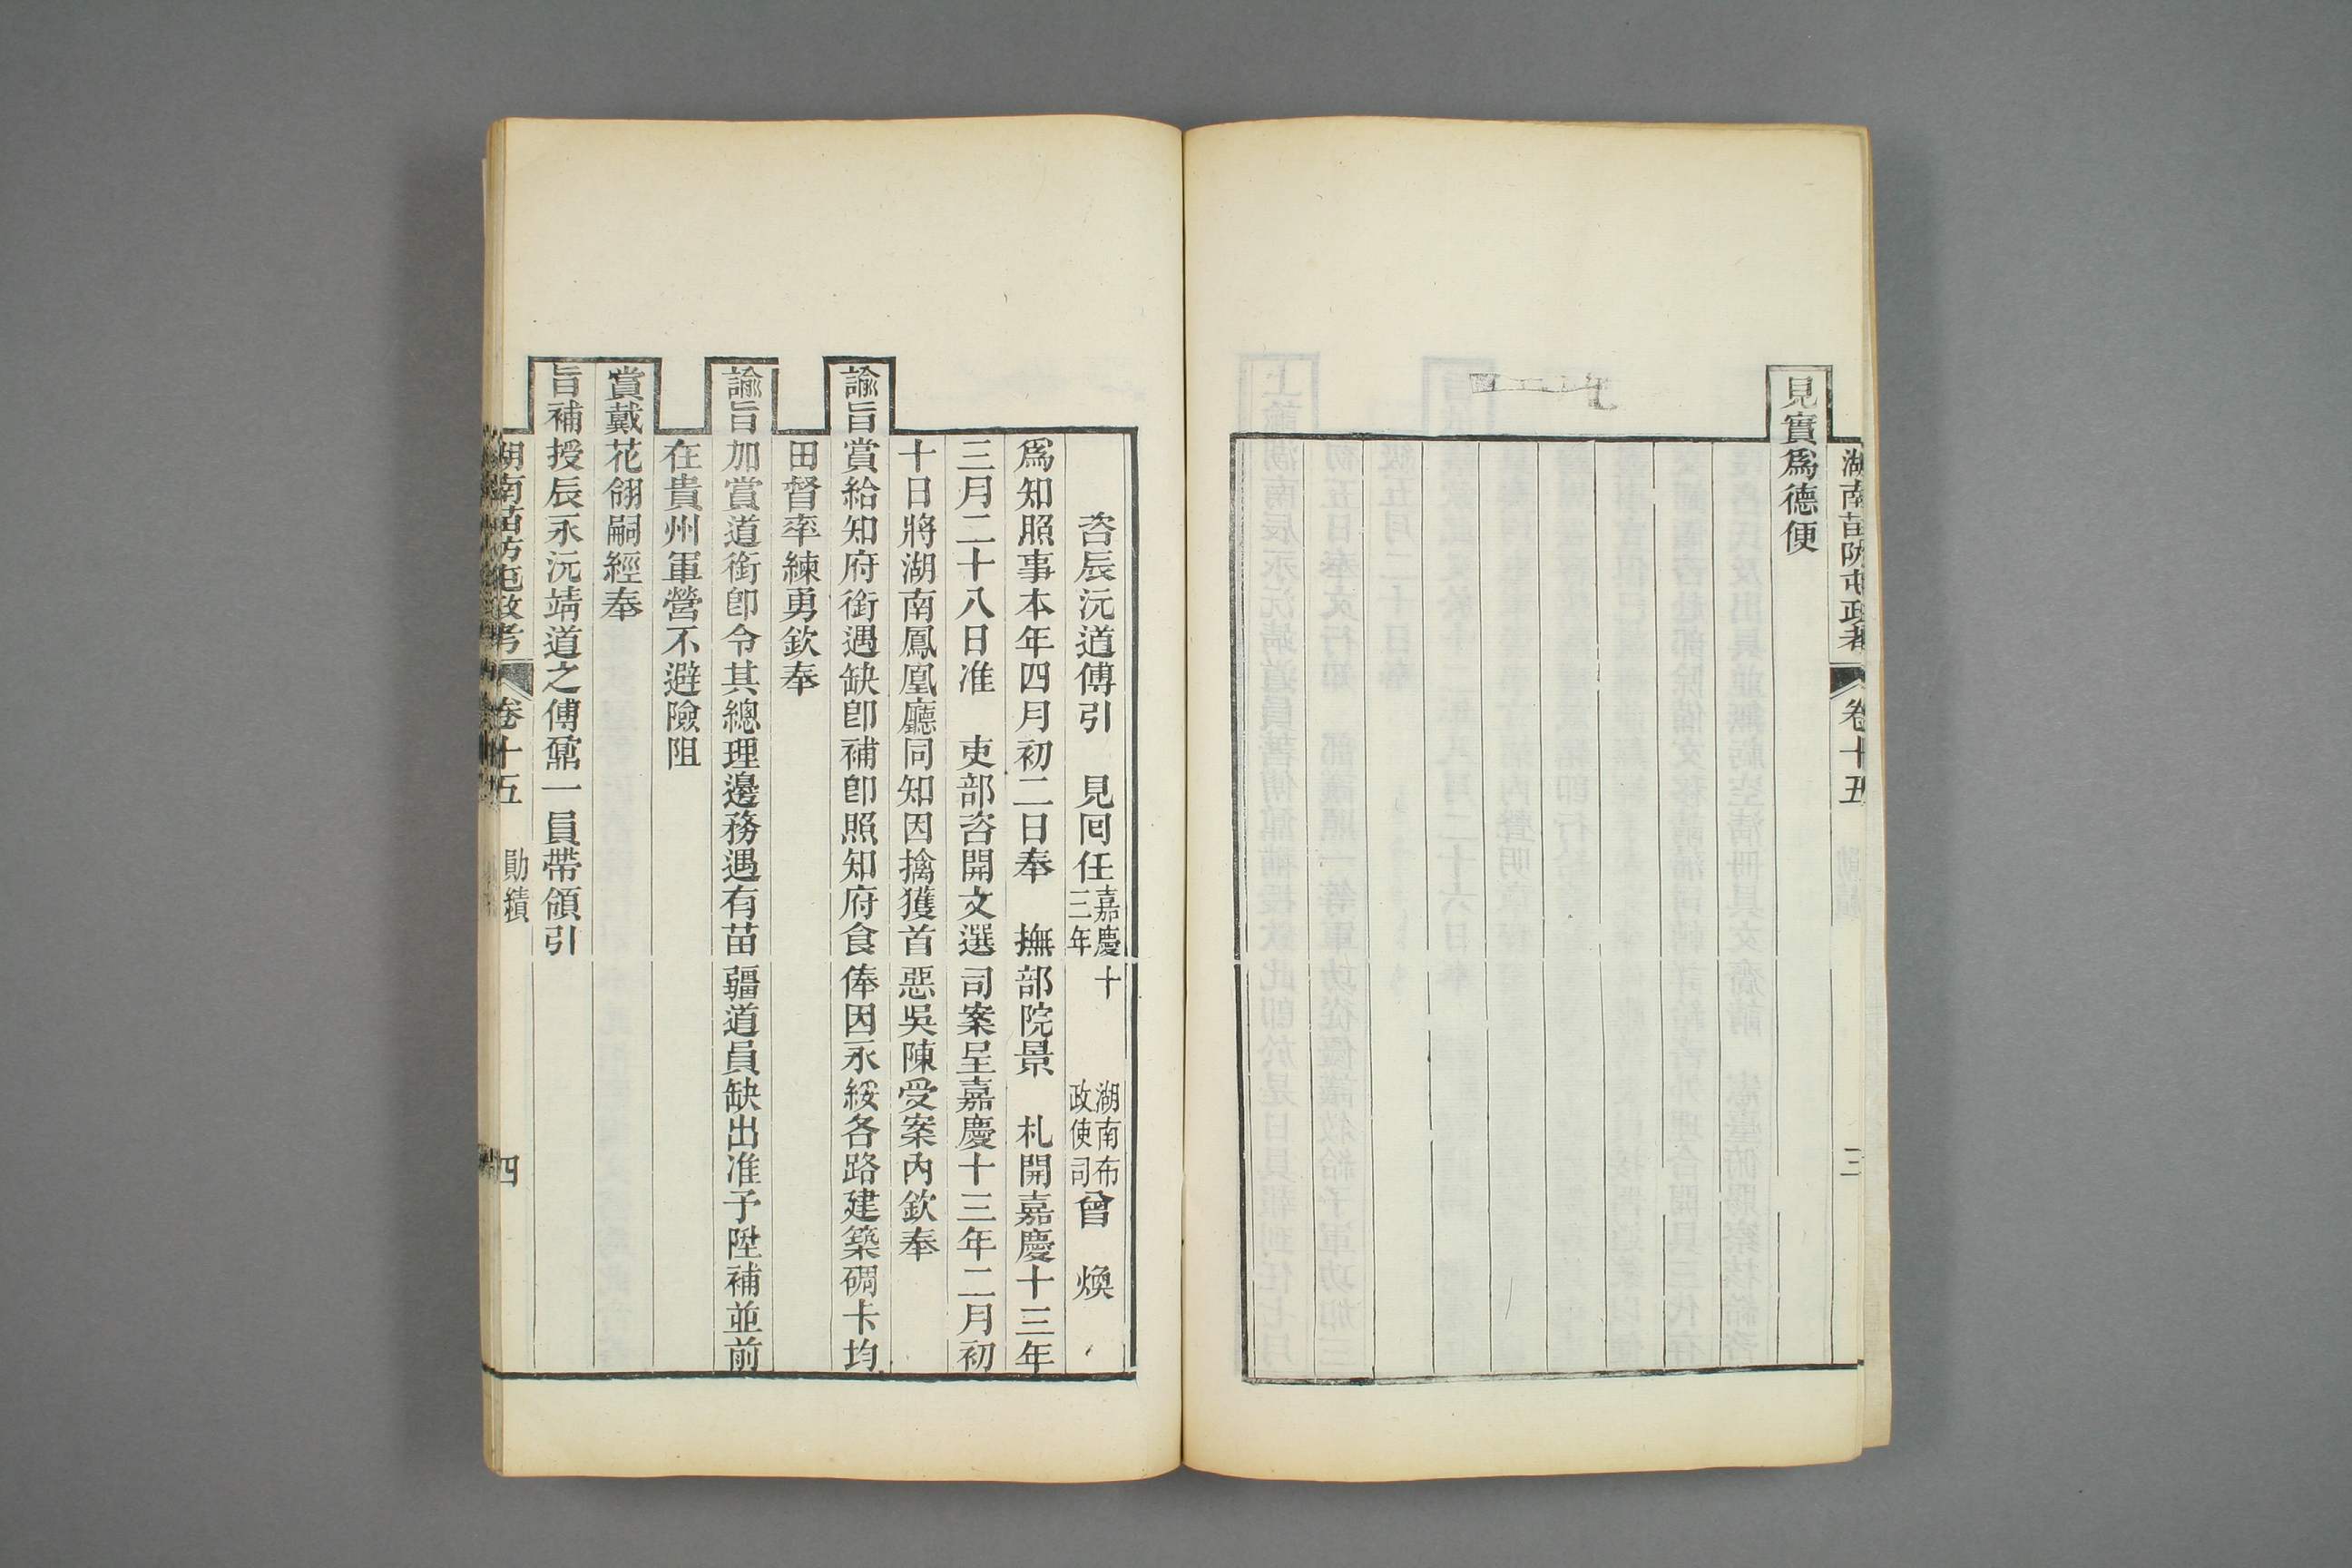 湖南苗防屯政考 卷十五 勛績 三
見實爲德便
咨辰沅道傅引　見回任嘉慶十三年 湖南布政使司曾　煥
爲知照事本年四月初二日奉　撫部院景　札開嘉慶十三年
三月二十八日准　吏部咨開文選司案呈嘉慶十三年二月初
十日將湖南鳳凰廳同知因擒獲首惡吳陳受案內欽奉
諭旨賞給知府銜遇缺卽補卽照知府食俸因永綏各路建築碉卡均
田督率練勇欽奉
諭旨加賞道銜卽令其總理邊務遇有苗疆道員缺出准予陞補並前
在貴州軍營不避險阻
賞戴花翎嗣經奉
旨補授辰永沅靖道之傅鼐一員帶領引
湖南苗防屯政考 卷十五 勛績 四